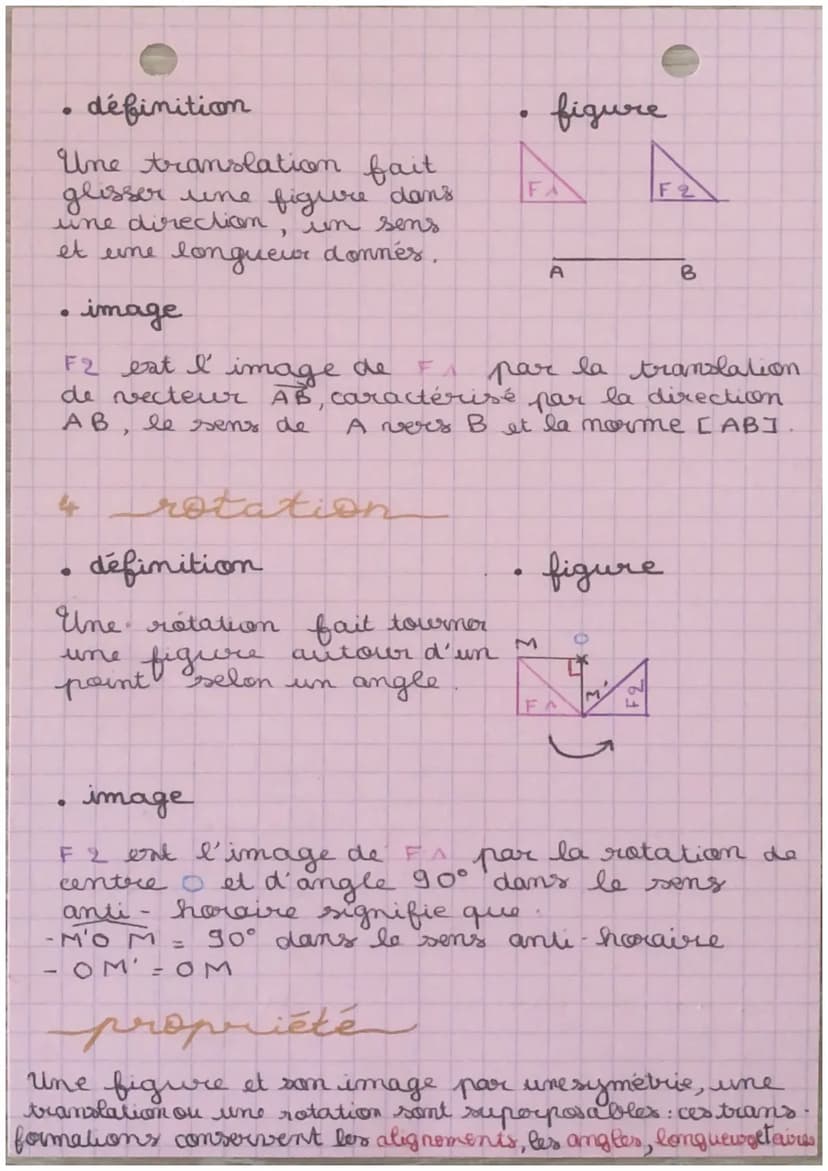 • définition
Une translation fait
glisser une figure dans
une direction, un sens
et une longueur donnés.
• figure
F1
F2
A
B
• image
F2 est l'image de F1 par la translation
de vecteur AB, caractérisé par la direction
AB, le sens de A vers B et la norme [AB].
4 rotation
• définition
Une rotation fait tourner
une figure autour d'un
point selon un angle.
• figure
M
O
M'
F1
F2
• image
F2 est l'image de F1 par la rotation de
centre O et d'angle 90° dans le sens
anti-horaire signifie que.
- M'OM = 90° dans le sens anti-horaire
- OM' = OM
propriété
Une figure et son image par une symétrie, une
translation ou une rotation sont superposables : ces trans-
formations conservent les alignements, les angles, longueurs et aires